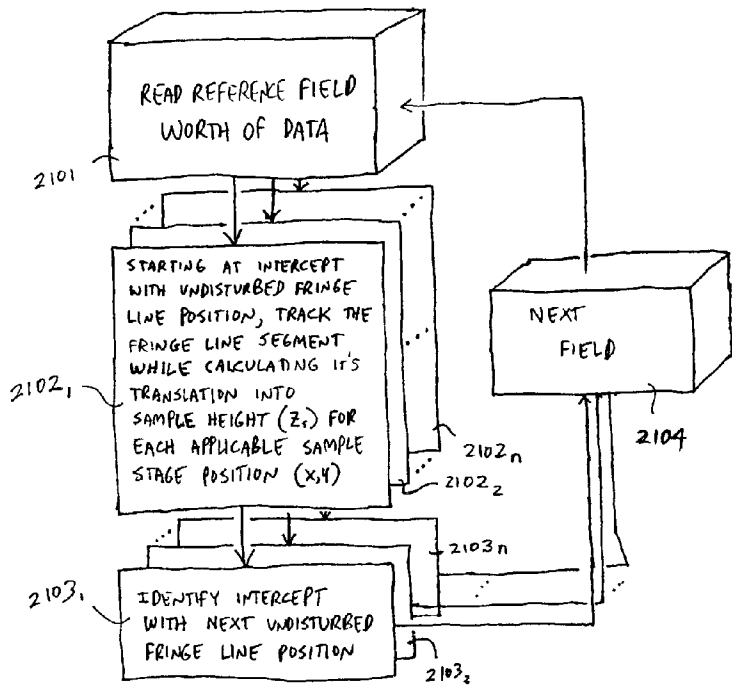 READ REFERENCE FIELD
WORTH OF DATA
2101
STARTING AT INTERCEPT
WITH UNDISTURBED FRINGE
LINE POSITION, TRACK THE
FRINGE LINE SEGMENT
WHILE CALCULATING IT'S
TRANSLATION INTO
SAMPLE HEIGHT (Zs) FOR
EACH APPLICABLE SAMPLE
STAGE POSITION (X,Y)
2102₁
2102n
2102₂
NEXT
FIELD
2104
IDENTIFY INTERCEPT
WITH NEXT UNDISTURBED
FRINGE LINE POSITION
2103₁
2103n
2103₂